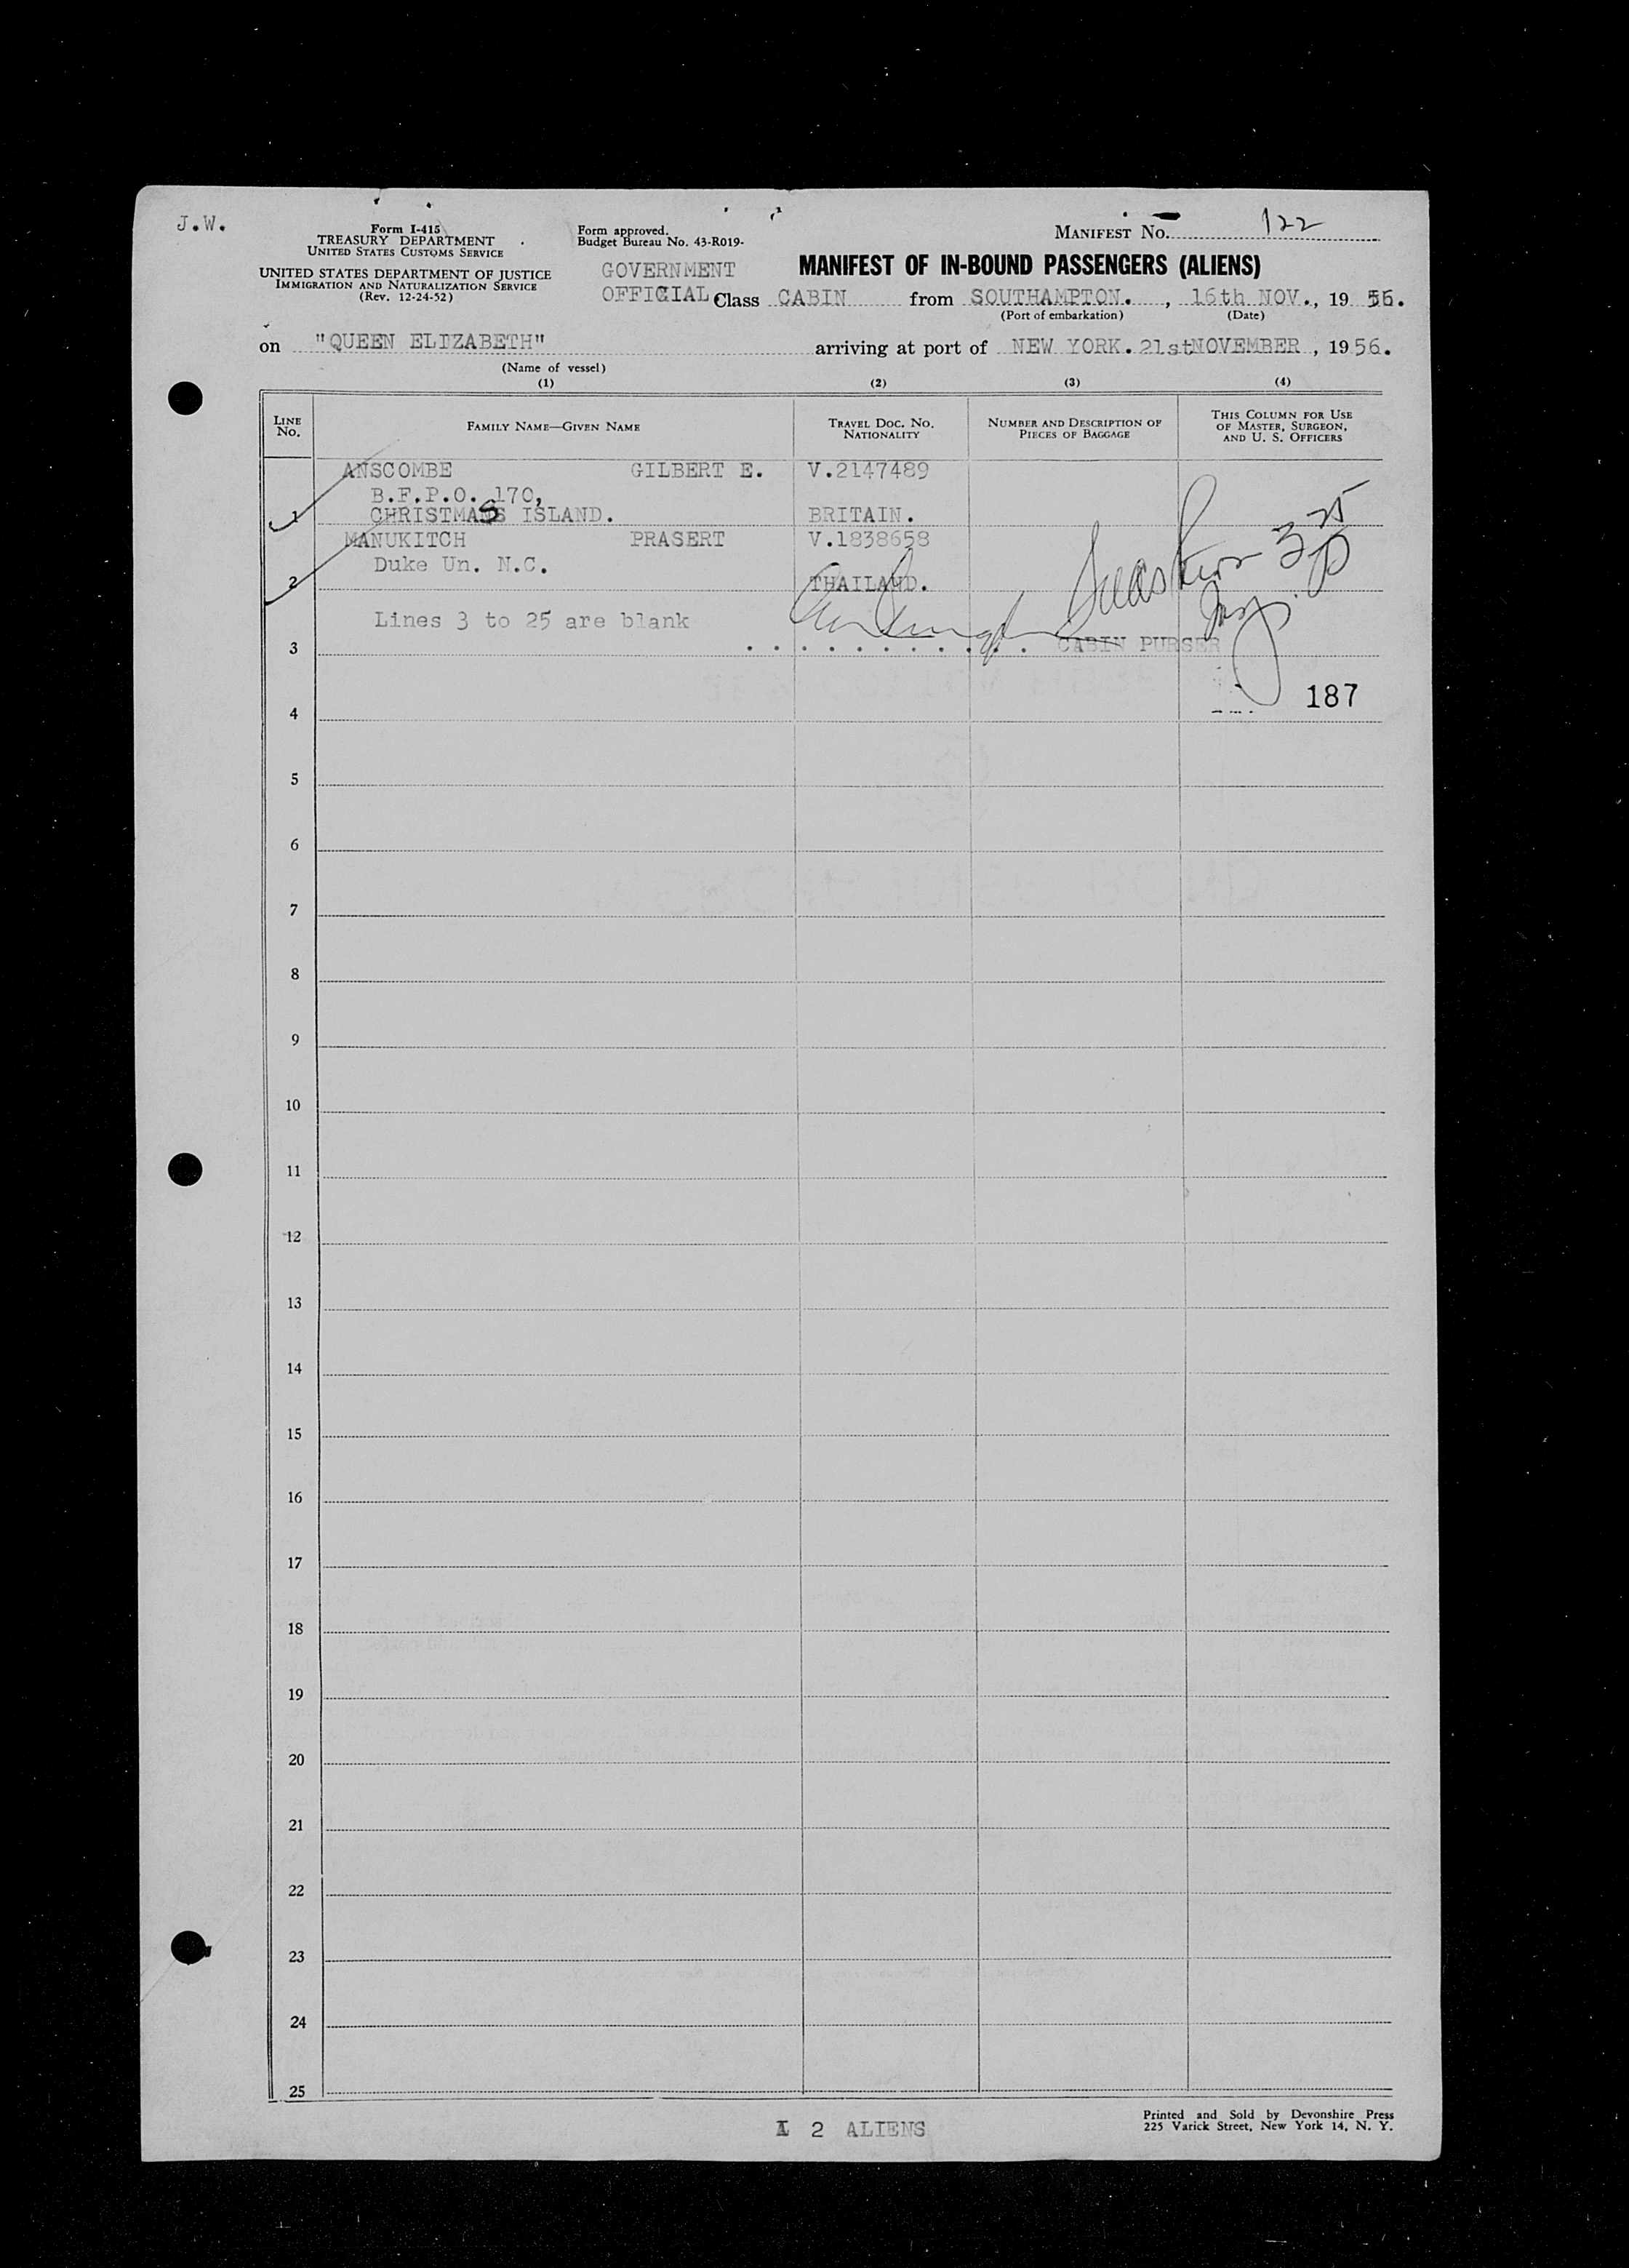 J.W.
Form I-415
TREASURY DEPARTMENT
UNITED STATES CUSTOMS SERVICE
UNITED STATES DEPARTMENT OF JUSTICE
IMMIGRATION AND NATURALIZATION SERVICE
(Rev. 12-24-52)
Form approved.
Budget Bureau No. 43-R019-
MANIFEST NO. 122
MANIFEST OF IN-BOUND PASSENGERS (ALIENS)
GOVERNMENT
OFFICIAL Class CABIN from SOUTHAMPTON. , 16th NOV., 19 56.
(Port of embarkation) (Date)
on "QUEEN ELIZABETH" arriving at port of NEW YORK. 21st NOVEMBER , 19 56.
(Name of vessel)
(1) (2) (3) (4)
LINE NO. FAMILY NAME—GIVEN NAME TRAVEL DOC. NO. NATIONALITY NUMBER AND DESCRIPTION OF PIECES OF BAGGAGE THIS COLUMN FOR USE OF MASTER, SURGEON, AND U. S. OFFICERS
ANSCOMBE GILBERT E. V.2147489
B.F.P.O. 170,
1 CHRISTMAS ISLAND. BRITAIN.
MANUKITCH PRASERT V.1838658
Duke Un. N.C.
2 THAILAND.
Lines 3 to 25 are blank
3 . . . . . . . . . . . CABIN PURSER
187
4
5
6
7
8
9
10
11
12
13
14
15
16
17
18
19
20
21
22
23
24
25
2 ALIENS
Printed and Sold by Devonshire Press
225 Varick Street, New York 14, N. Y.